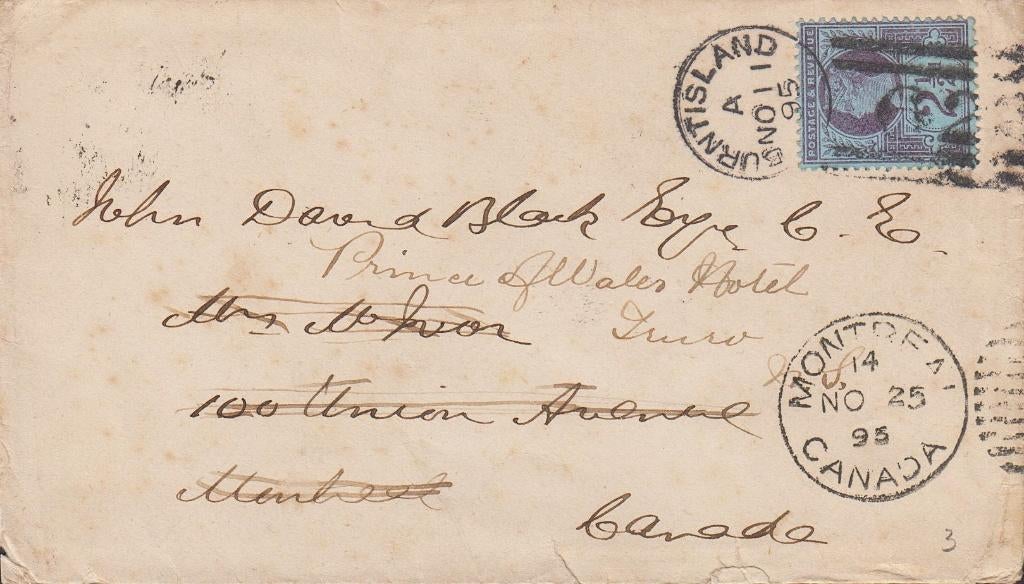 BURNTISLAND
A
NO 11
95
POSTAGE & REVENUE
John David Black Esqr C. E.
Prince of Wales Hotel
Mrs
Truro
N. S.
100 Union Avenue
Montreal
Canada
MONTREAL
14
NO 25
95
CANADA
3